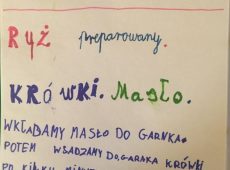 Ryż preparowany.
KRÓWKI. Masło.
WKŁADAMY MASŁO DO GARNKA.
POTEM WSADZAMY DO GARAKA KRÓWKI
PO KILKU